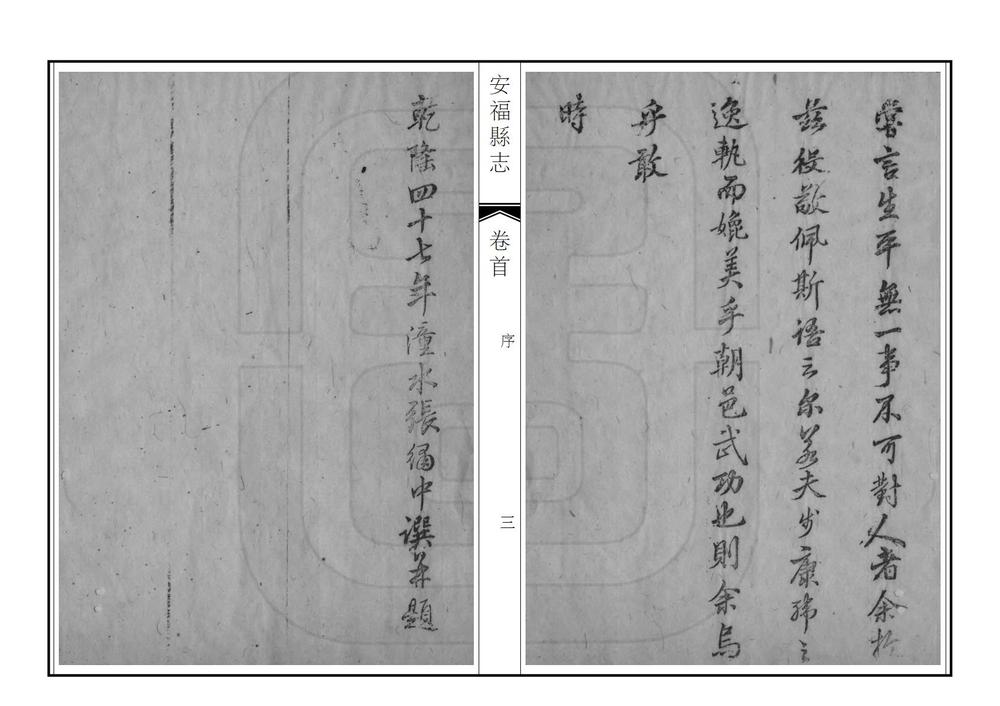 嘗言生平無一事不可對人者余於
茲役敢佩斯語云尔若夫步康瑋之
逸軌而媲美乎朝邑武功也則余烏
乎敢
時
安福縣志
卷首
序
三
乾隆四十七年潼水張繡中譔并題